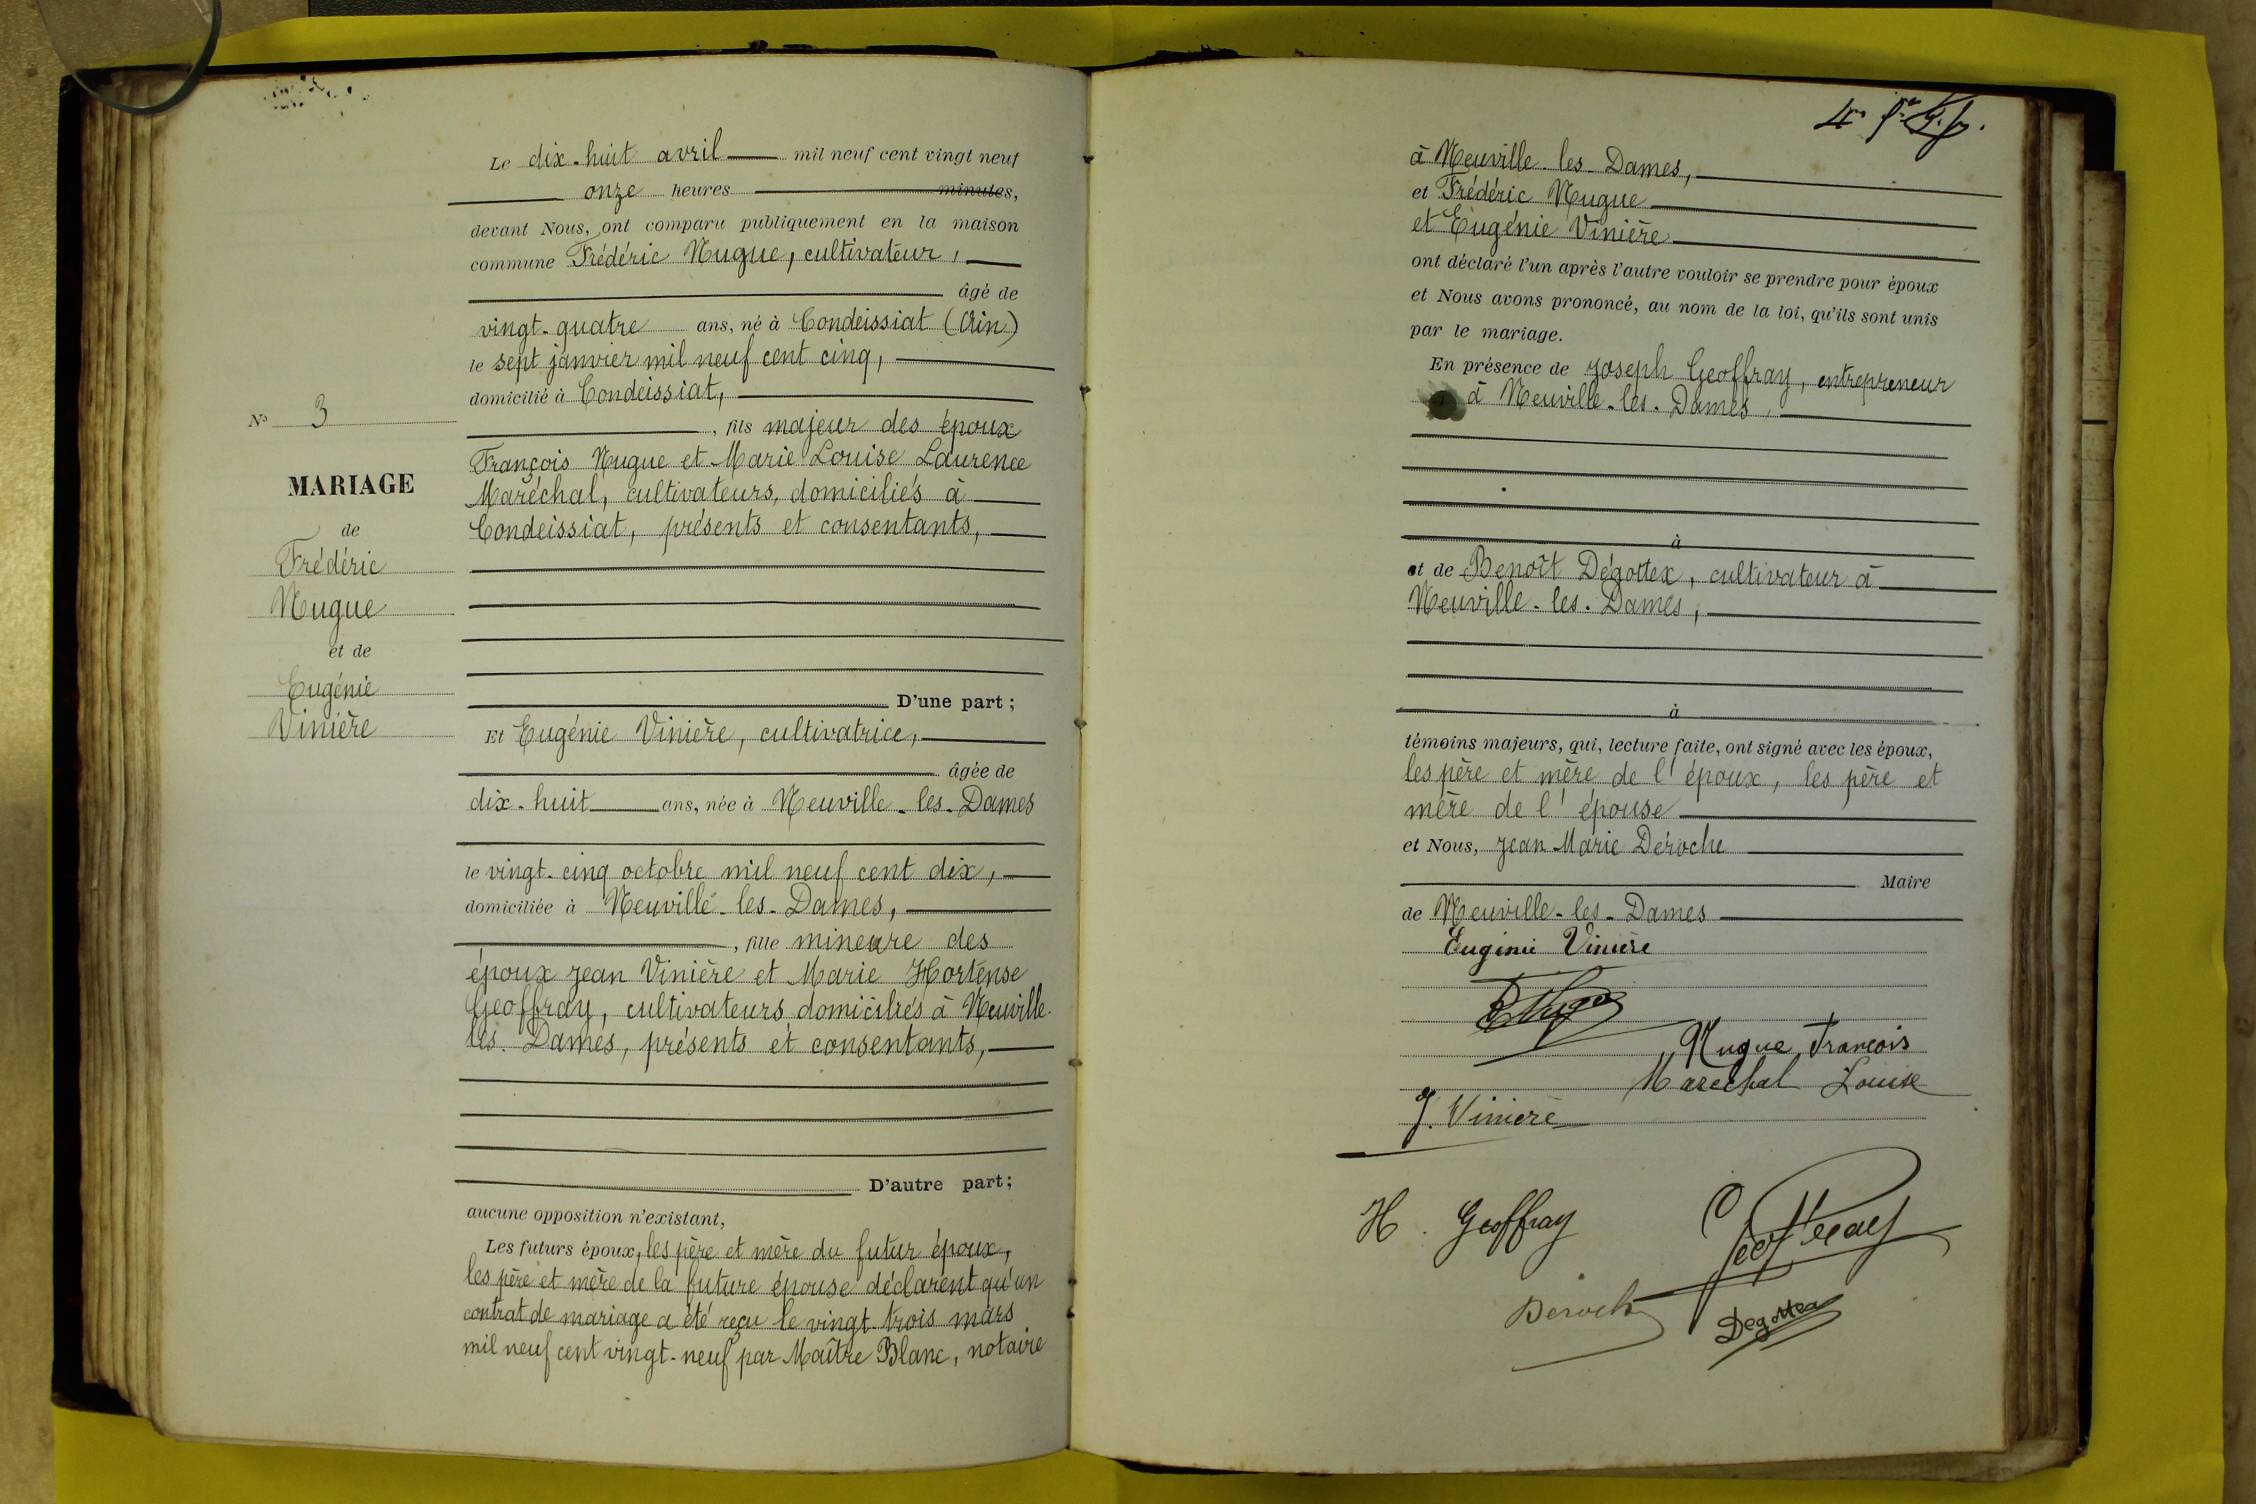 Le dix-huit avril mil neuf cent vingt neuf
onze heures minutes,
devant Nous, ont comparu publiquement en la maison
commune Frédéric Nugue, cultivateur,
âgé de
vingt-quatre ans, né à Condeissiat (Ain)
le sept janvier mil neuf cent cinq,
domicilié à Condeissiat,
, fils majeur des époux
François Nugue et Marie Louise Laurence
Maréchal, cultivateurs, domiciliés à
Condeissiat, présents et consentants,
D'une part ;
Et Eugénie Vinière, cultivatrice,
âgée de
dix-huit ans, née à Neuville-les-Dames
le vingt-cinq octobre mil neuf cent dix,
domiciliée à Neuville-les-Dames,
, fille mineure des
époux Jean Vinière et Marie Hortense
Geoffray, cultivateurs domiciliés à Neuville-
les-Dames, présents et consentants,
D'autre part ;
aucune opposition n'existant,
Les futurs époux, les père et mère du futur époux,
les père et mère de la future épouse déclarent qu'un
contrat de mariage a été reçu le vingt-trois mars
mil neuf cent vingt-neuf par Maître Blanc, notaire
N° 3
MARIAGE
de
Frédéric
Nugue
et de
Eugénie
Vinière
à Neuville-les-Dames,
et Frédéric Nugue
et Eugénie Vinière
ont déclaré l'un après l'autre vouloir se prendre pour époux
et Nous avons prononcé, au nom de la loi, qu'ils sont unis
par le mariage.
En présence de Joseph Geoffray, entrepreneur
à Neuville-les-Dames,
à
et de Benoît Dégottex, cultivateur à
Neuville-les-Dames,
à
témoins majeurs, qui, lecture faite, ont signé avec les époux,
les père et mère de l'époux, les père et
mère de l'épouse
et Nous, Jean Marie Déroche
Maire
de Neuville-les-Dames
Eugénie Vinière
Nugue François
Maréchal Louise
J. Vinière
H. Geoffray
Geoffray
Deroche
Degottex